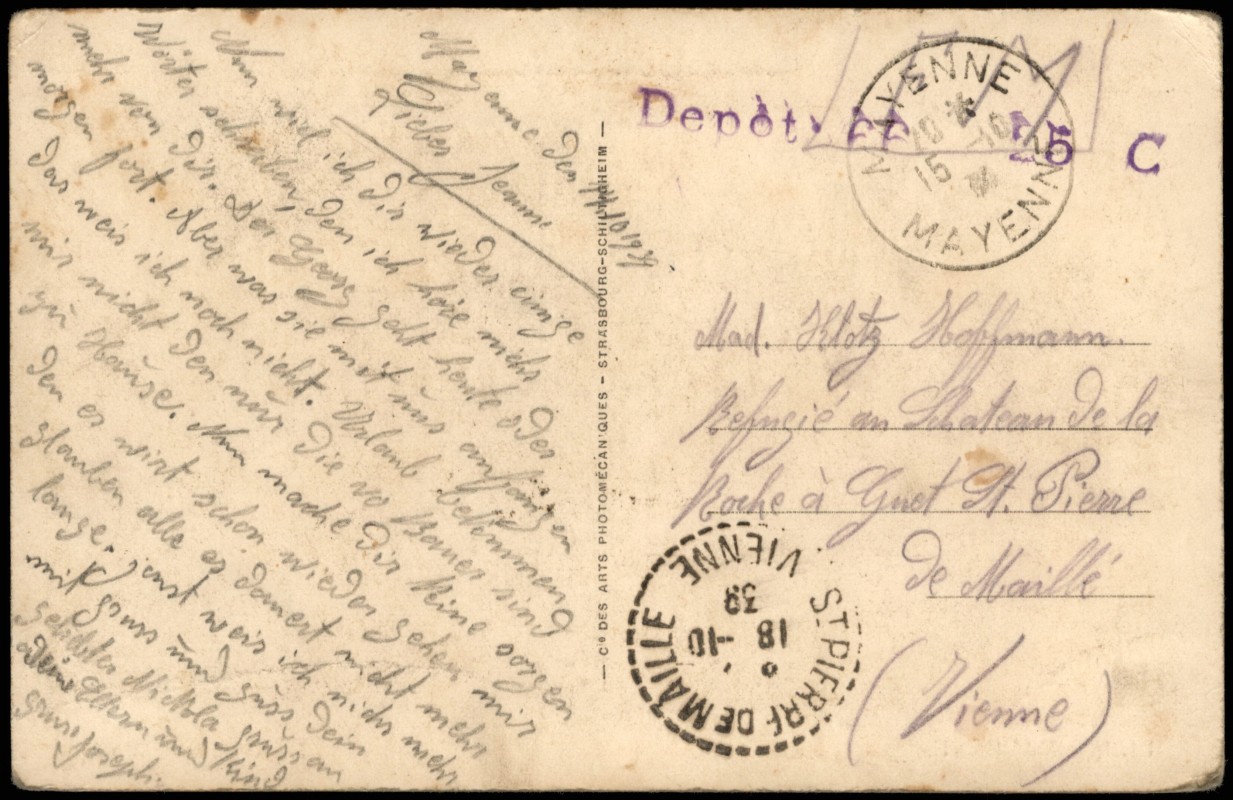 Mayenne den 14/10 1939
Lieber Jeanne
Nun wiel ich dir wieder einige
Wörter schreiben, den ich höre nichs
mehr von dir. Der Georg geht heute oder
morgen fort. Aber was sie mit uns anfangen
das weis ich noch nicht. Urlaub bekommen
mir nicht den nur die vo Bauer sind
zu Hause. Nun mache dir keine sorgen
den es wirt schon wieder gehen mir
glauben alle es dauert nicht mehr
lange. sonst weis ich nichs mehr
mit gruss und guss dein
geliebter Nickola gruss an
deine Eltern und Kind
gruss Joseph.
— Cie DES ARTS PHOTOMÉCANIQUES - STRASBOURG-SCHILTIGHEIM —
Depôt. 22 25 C
MAYENNE
10 * 10
15
*
MAYENNE
Mad. Klotz Hoffmann.
Refugié au Schateau de la
Roche à Guet St. Pierre
de Maillé
(Vienne)
ST PIERRE DE MAILLE
18 -10
39
VIENNE